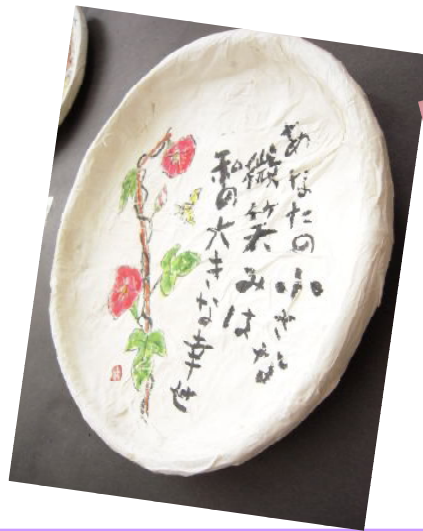 あなたの小さな
微笑みは
私の大きな幸せ